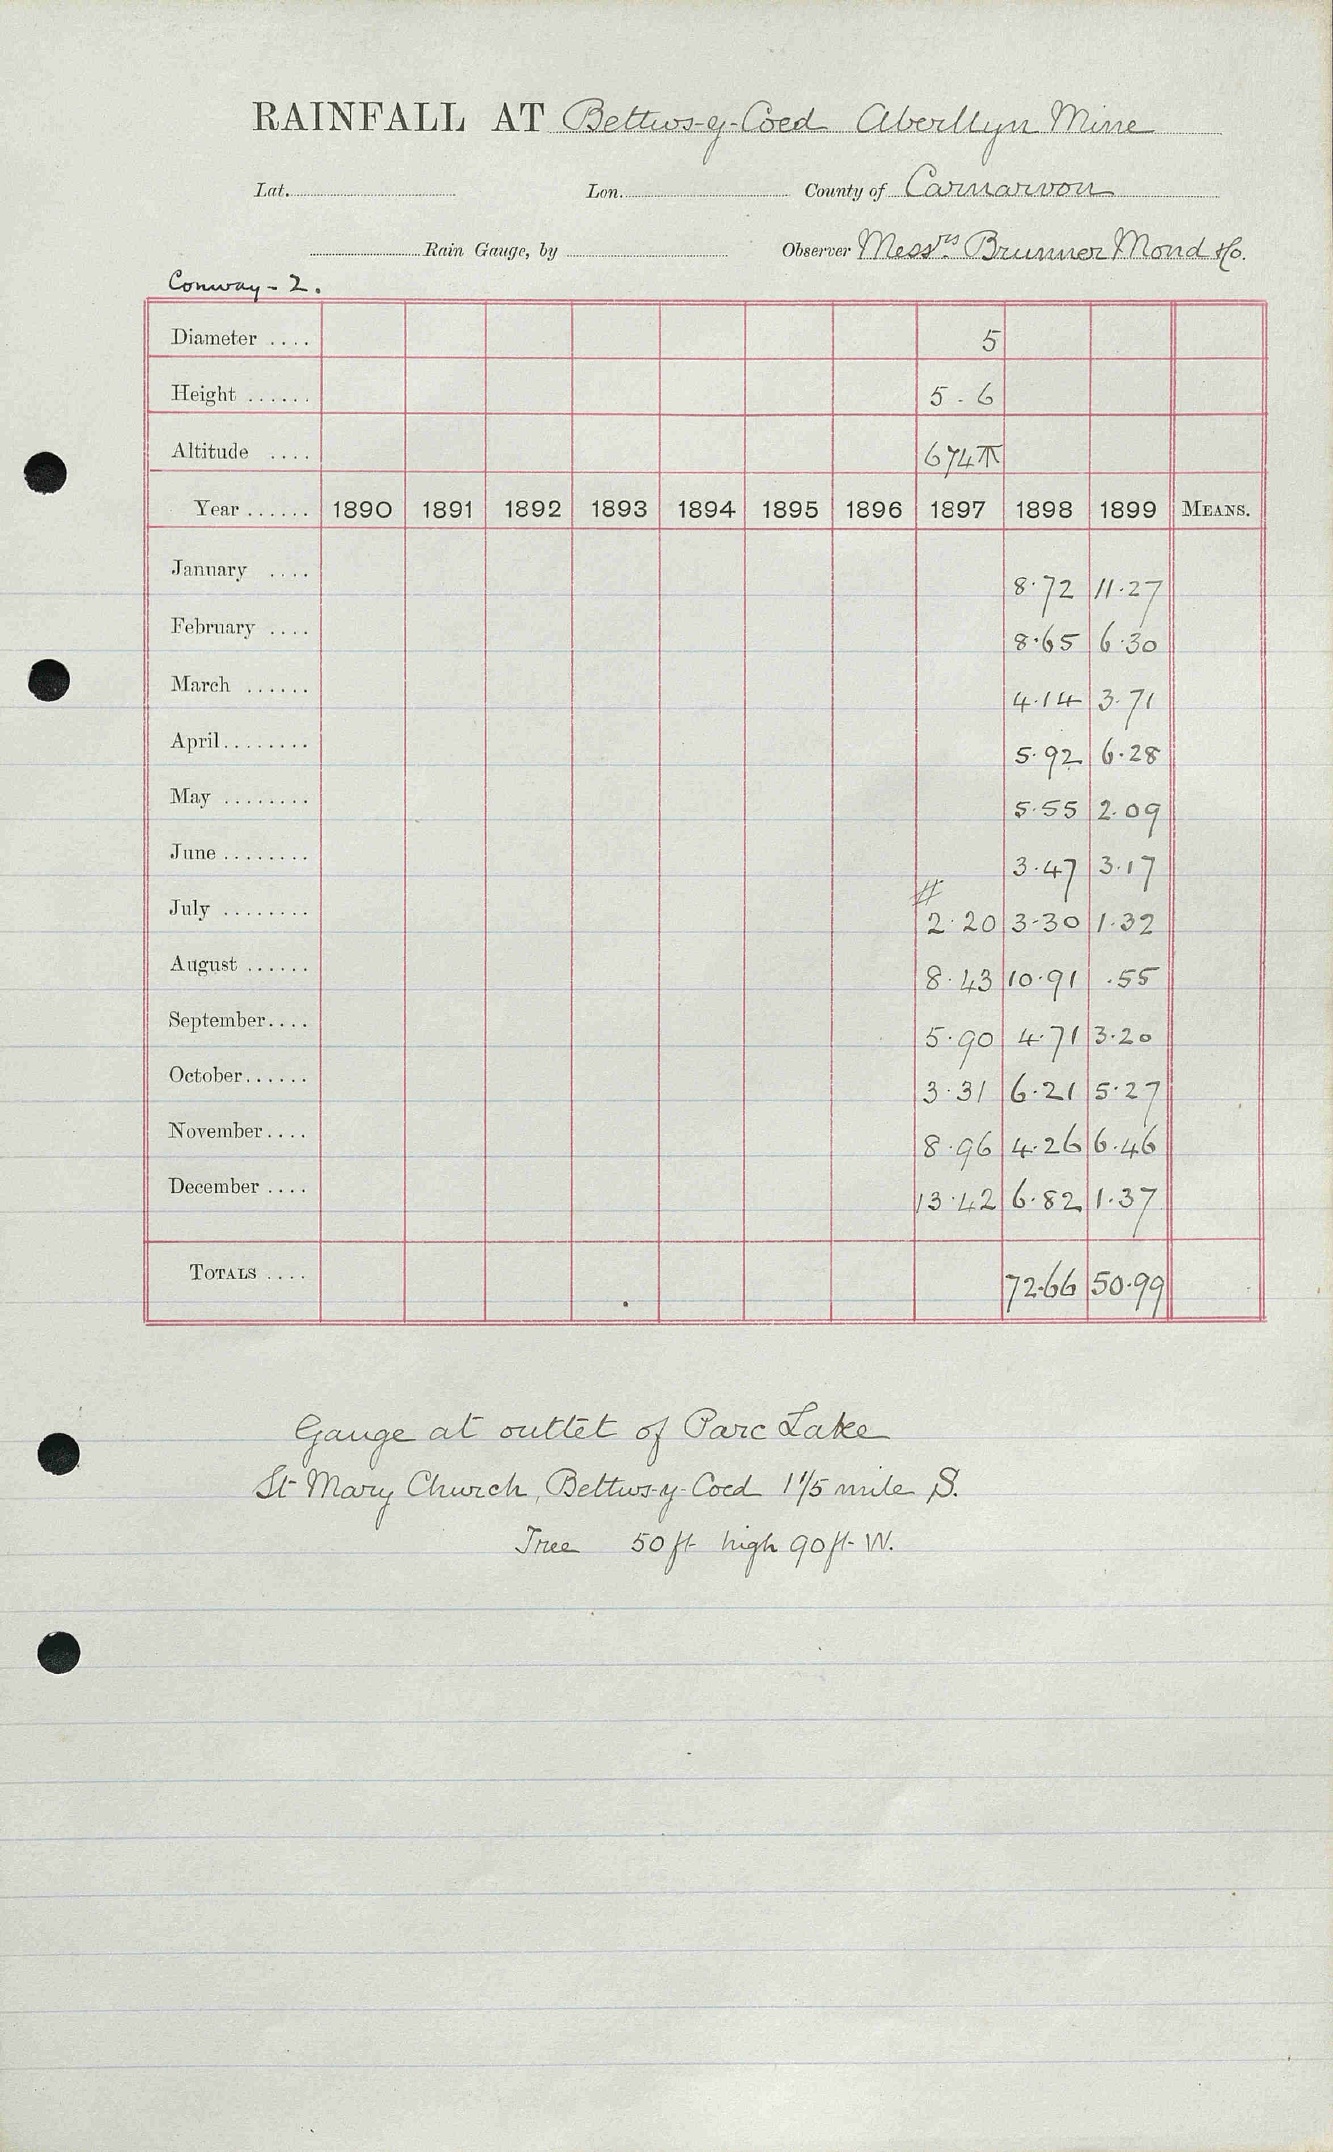 RAINFALL AT Bettws-y-Coed Aberllyn Mine
Lat. Lon. County of Carnarvon
Rain Gauge, by Observer Messrs. Brunner Mond & Co.
Conway - 2.
Diameter .... 5
Height ...... 5 - 6
Altitude .... 674
Year ...... 1890 1891 1892 1893 1894 1895 1896 1897 1898 1899 MEANS.
January .... 8.72 11.27
February .... 8.65 6.30
March ...... 4.14 3.71
April........ 5.92 6.28
May ........ 5.55 2.09
June ........ 3.47 3.17
July ........ # 2.20 3.30 1.32
August ...... 8.43 10.91 .55
September.... 5.90 4.71 3.20
October...... 3.31 6.21 5.27
November.... 8.96 4.26 6.46
December .... 13.42 6.82 1.37
TOTALS .... 72.66 50.99
Gauge at outlet of Parc Lake
St Mary Church, Bettws-y-Coed 1 1/5 mile S.
Tree 50 ft high 90 ft W.